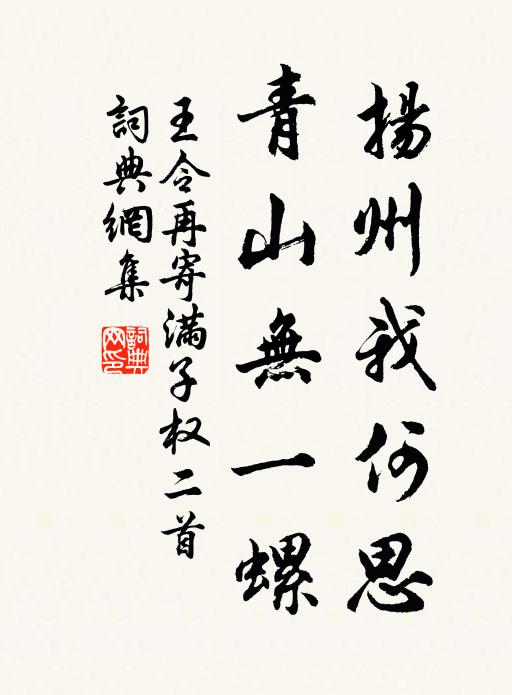 揚州我何思
青山無一螺
王令再寄滿子权二首
詞典網集
詞典网印